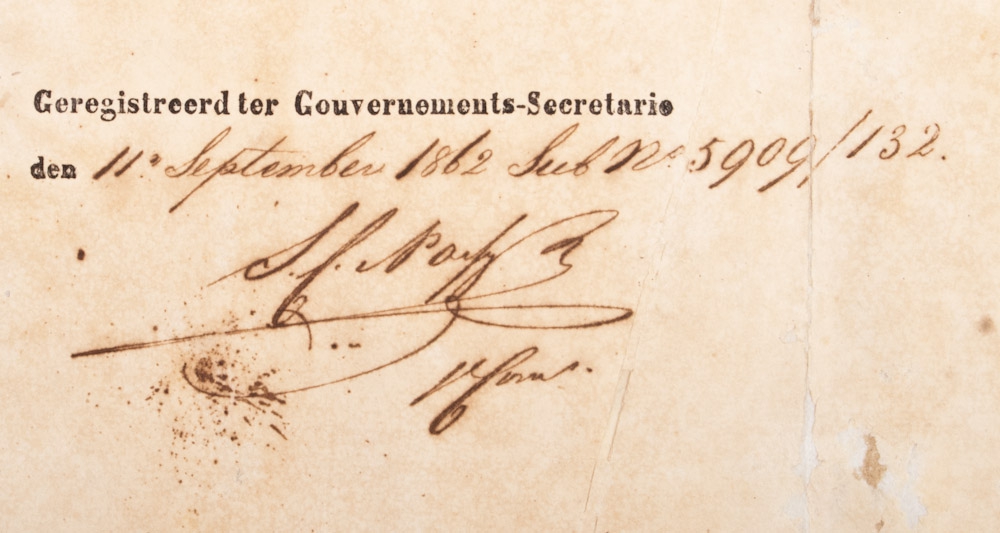 Geregistreerd ter Gouvernements-Secretarie
den 11e September 1862 Sub No 5909/132.